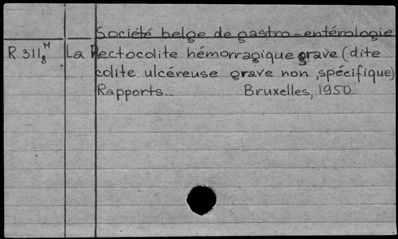 Société belge de gastro-entérologie
R 311 H 8 La Rectocolite hémorragique grave (dite
colite ulcéreuse grave non spécifique)
Rapports... Bruxelles, 1950